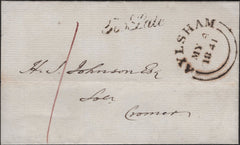 Too Late
AYLSHAM
MY
1841
H. S. Johnson Esq
Solr
Cromer